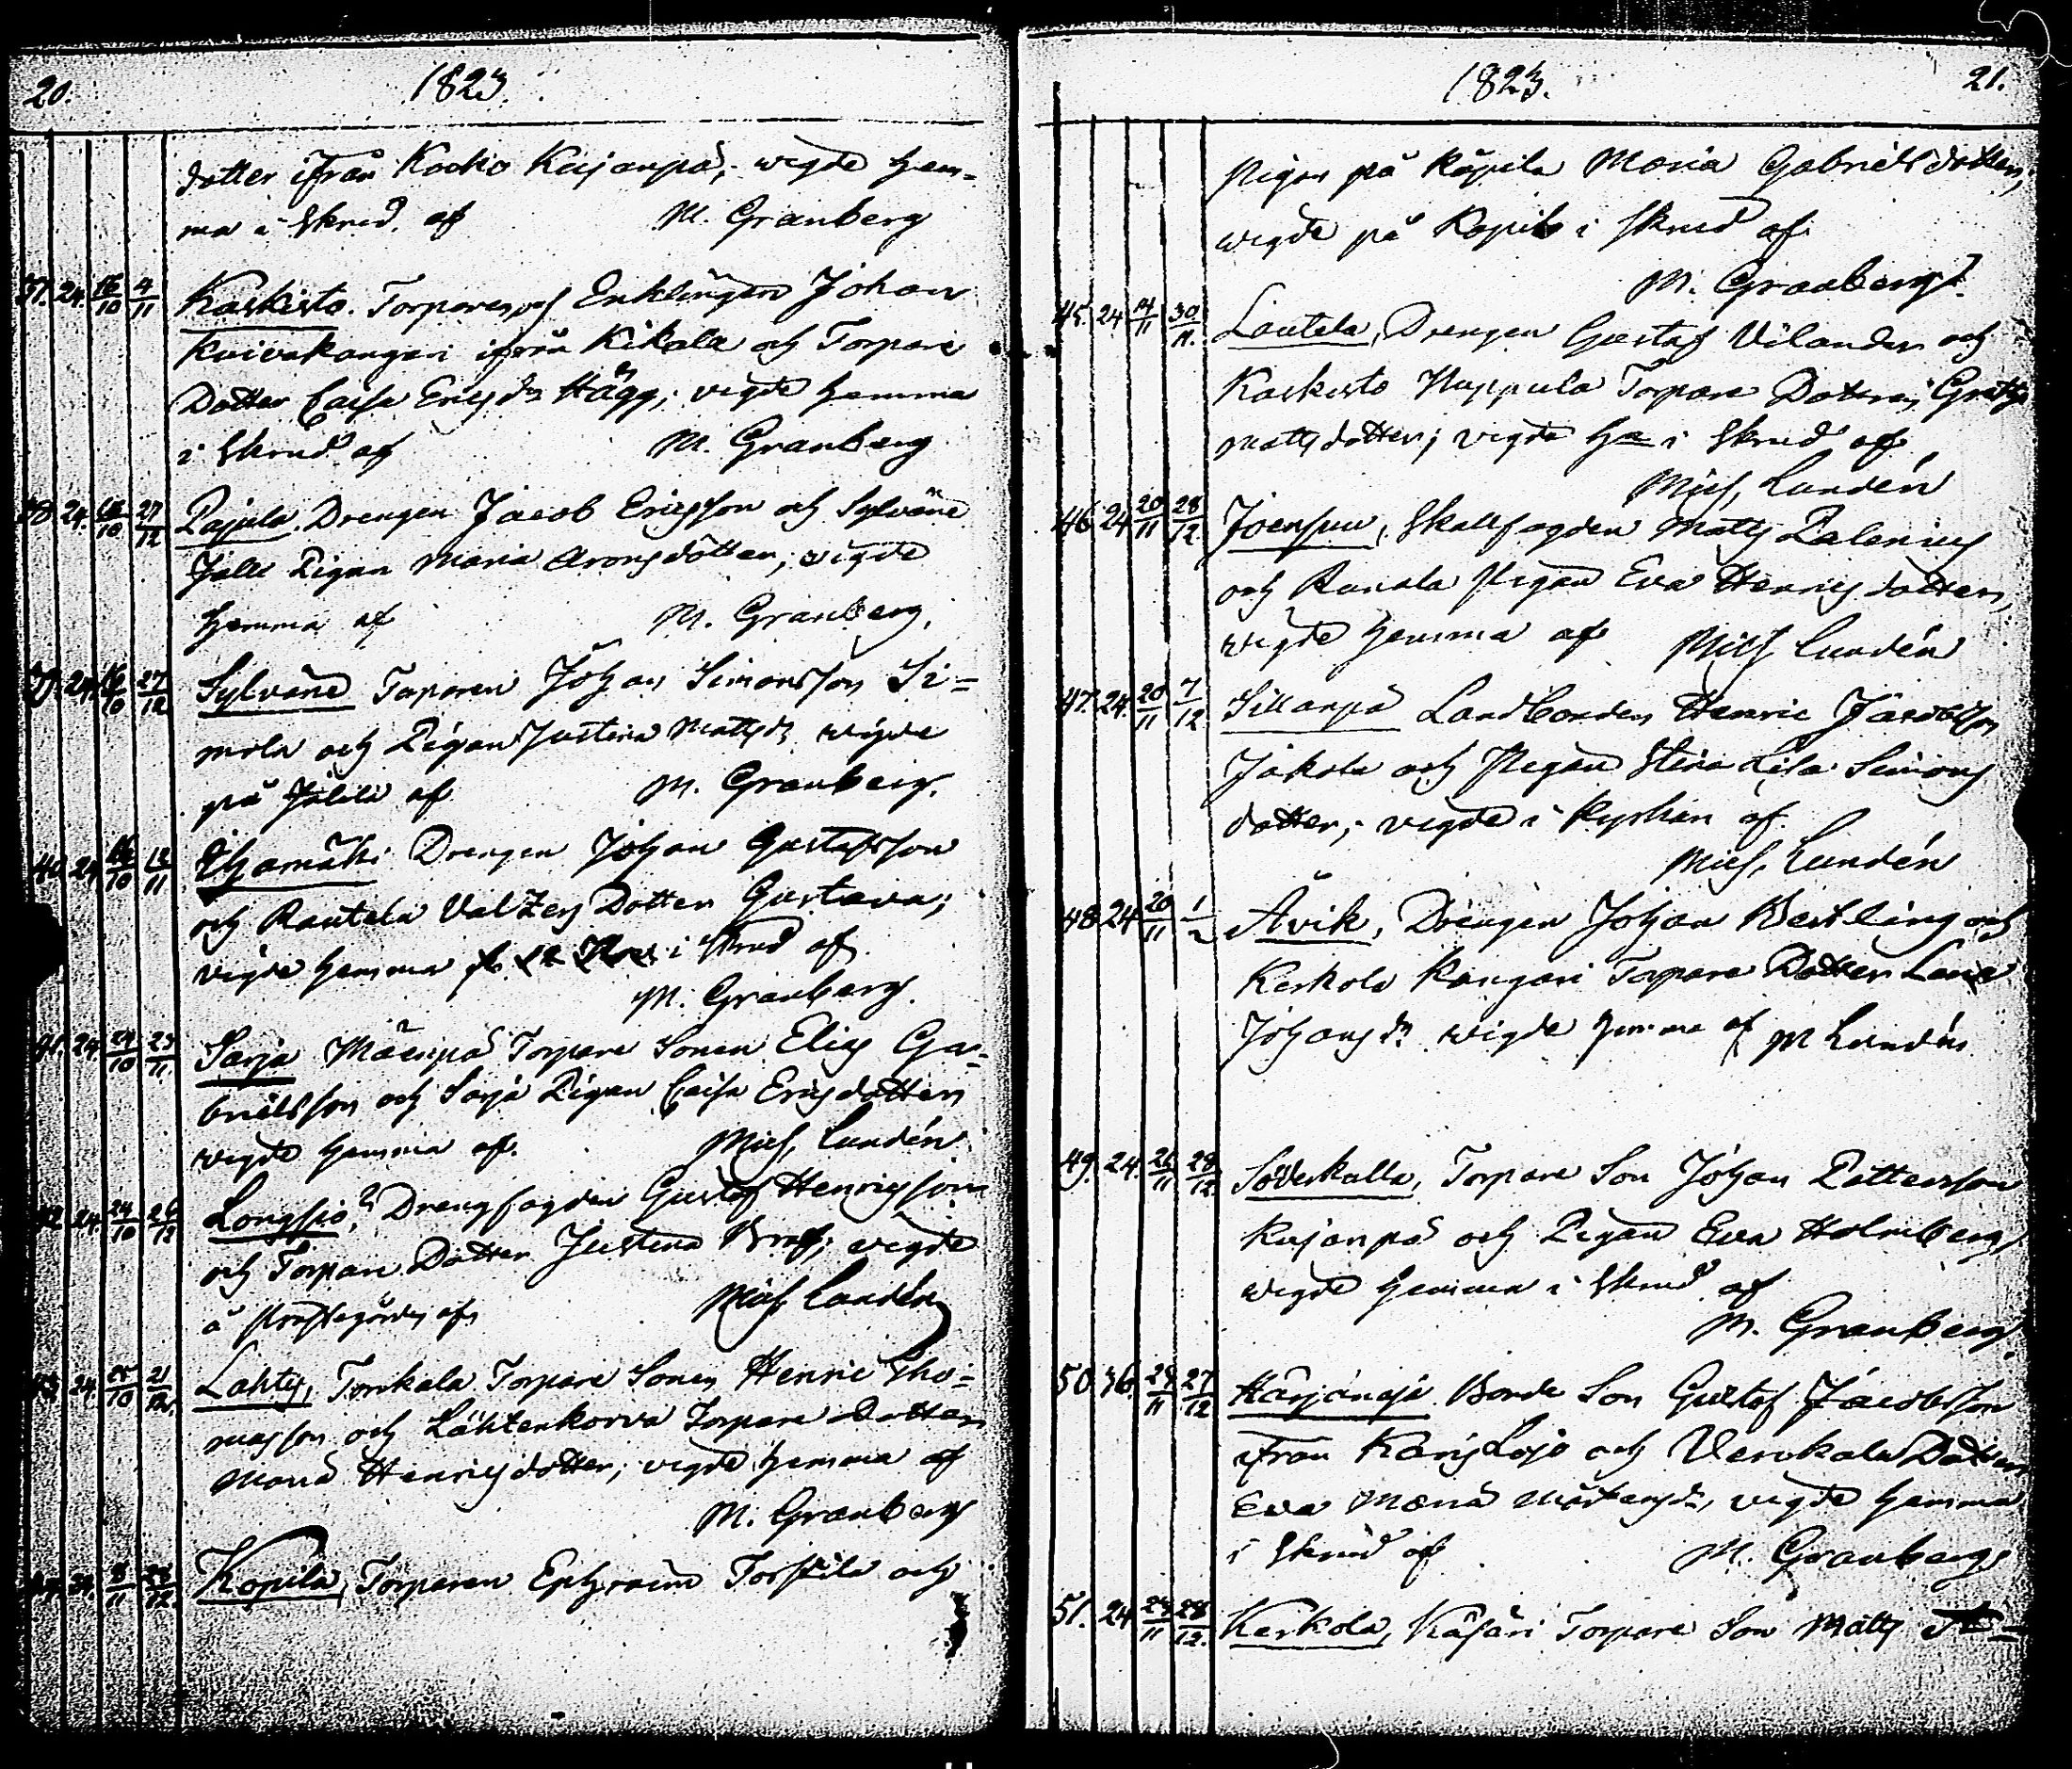 20. 1823.
dotter ifrån Kosko Kujanpä; wigde hem-
ma i Skrud af M. Granberg
37. 24. 16/10 4/11 Koskisto. Torparen och Enklingen Johan
Kuivakangari ifrån Kikala och Torpare
Dotter Caisa Ericsdr Hägg; vigde hemma
i Skrud af M. Granberg
38. 24. 16/10 27/12 Pajula. Drengen Jacob Ericsson och Sylvänä
Jälli Pigan Maria Aronsdotter; wigde
hemma af M. Granberg.
39. 24. 16/10 27/12 Sylvänä Torparen Johan Simonsson Si=
mola och Pigan Justina Mattsdr wigde
på Jälilä af M. Granberg.
40. 24. 16/10 12/11 Drengen Johan Gustafsson
och Rautela Dotter Gustava;
vigde hemma i Skrud af
M. Granberg.
41. 24. 24/10 23/11 Sarja Mäenpä Torpare Sonen Elias Ga-
brielsson och Sarja Pigan Caisa Ericsdotter
vigde hemma af. Mich. Lundén
42. 24. 24/10 26/12 Långsjö, Drengfogden Gustaf Henricsson
och Torpare Dotter Justina Braf; vigde
å Prestegården af Mich Lundén
43. 24. 25/10 21/12. Lahty, Torikala Torpare Sonen Henric Tho-
masson och Lähtenkorva Torpare Dotter
Maria Henricsdotter; vigde hemma af
M. Granberg
44. 24. 8/11 28/12. Kopila, Torparen Ephraim Torskila och
1823. 21.
Pigan på Kopila Maria Gabrielsdotter;
wigde på Kopila i Skrud af
M. Granberg.
45. 24 14/11 30/11. Lautela, Drengen Gustaf Vilander och
Koskisto Huppula Torpare Dottren Greta
Mattsdotter; vigde ha i Skrud af
Mich. Lundén
46. 24 20/11 28/12. Joensuu, Skallfogden Matts Palenius
och Ranala Pigan Eva Henricsdotter,
wigde hemma af Mich Lundén
47. 24. 20/11 7/12 Sillanpä Landbonden Henric Jacobsson
Jakola och Pigan Stina Lisa Simons
dotter; vigde i Kyrkan af
Mich. Lundén
48. 24 20/11 1/2 Åvik, Drengen Johan Westling och
Kerkola Kangari Torpare Dotter Lena
Johansdr. wigde hemma af M Lundén
49. 24. 21/11 28/12 Söderkulla, Torpare Son Johan Pettersson
Kujanpä och Pigan Eva Holmberg,
wigde hemma i Skrud af
M. Granberg.
50. 36. 29/11 27/12 Härjänojä Bonde Son Gustaf Jacobsson
ifrån Karislojo och Dotter
Eva Maria Mårtensdr, vigde hemma
i Skrud af M. Granberg
51. 24 29/11 28/12. Kerkola, Käsäri Torpare Son Matts